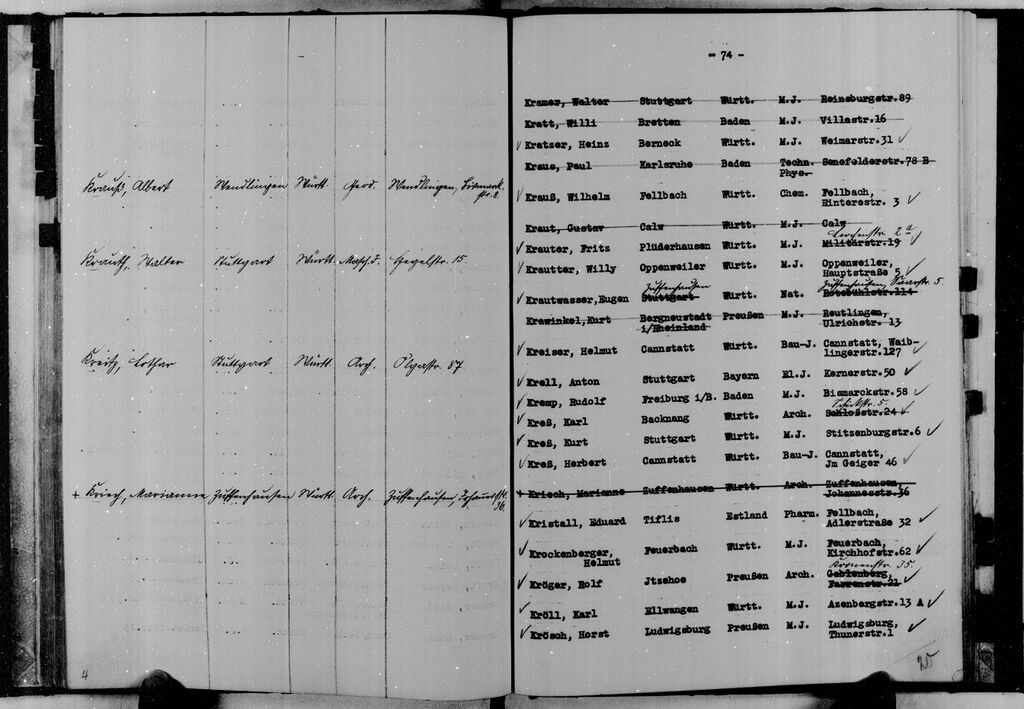 Krauß, Albert Wendlingen Württ. Geod. Wendlingen, Bismarck-
str. 8.
Krauth, Walter Stuttgart Württ. Masch.J. Hegelstr. 15.
Kreitz, Lothar Stuttgart Württ. Arch. Olgastr. 87
+ Kriech, Marianne Zuffenhausen Württ. Arch. Zuffenhausen, Johannesstr.
36.
4
- 74 -
Kramer, Walter Stuttgart Württ. M.J. Reinsburgstr.89
Kratt, Willi Bretten Baden M.J. Villastr.16
✓ Kratzer, Heinz Berneck Württ. M.J. Weimarstr.31 ✓
Kraus, Paul Karlsruhe Baden Techn. Senefelderstr.78 B
Phys.
✓ Krauß, Wilhelm Fellbach Württ. Chem. Fellbach,
Hinterestr. 3 ✓
Kraut, Gustav Calw Württ. M.J. Calw
Lerchenstr. 2a
✓ Krauter, Fritz Plüderhausen Württ. M.J. Militärstr.19 ✓
✓ Krautter, Willy Oppenweiler Württ. M.J. Oppenweiler,
Hauptstraße 5 ✓
Zuffenhausen Zuffenhausen, 5.
✓ Krautwasser,Eugen Stuttgart Württ. Nat. Rotebühlstr.114
Krawinkel,Kurt Bergneustadt Preußen M.J. Reutlingen,
i/Rheinland Ulrichstr. 13
✓ Kreiser, Helmut Cannstatt Württ. Bau-J. Cannstatt, Waib-
lingerstr.127 ✓
✓ Krell, Anton Stuttgart Bayern El.J. Kernerstr.50 ✓
✓ Kremp, Rudolf Freiburg i/B. Baden M.J. Bismarckstr.58 ✓
✓ Kreß, Karl Backnang Württ. Arch. Schloßstr.24 ✓
✓ Kreß, Kurt Stuttgart Württ. M.J. Stitzenburgstr.6 ✓
✓ Kreß, Herbert Cannstatt Württ. Bau-J. Cannstatt,
Jm Geiger 46 ✓
+ Kriech, Marianne Zuffenhausen Württ. Arch. Zuffenhausen,
Johannesstr.36
✓ Kristall, Eduard Tiflis Estland Pharm. Fellbach,
Adlerstraße 32 ✓
✓ Krockenberger, Feuerbach Württ. M.J. Feuerbach,
Helmut Kirchhofstr.62 ✓
Kronenstr. 35.
✓ Kröger, Rolf Jtzehoe Preußen Arch. Gablenberg,
Farrenstr.21 ✓
✓ Kröll, Karl Ellwangen Württ. M.J. Azenbergstr.13 A ✓
✓ Krösch, Horst Ludwigsburg Preußen M.J. Ludwigsburg,
Thunerstr.1 ✓